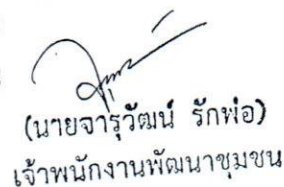 (นายจารุวัฒน์ รักพ่อ)
เจ้าพนักงานพัฒนาชุมชน